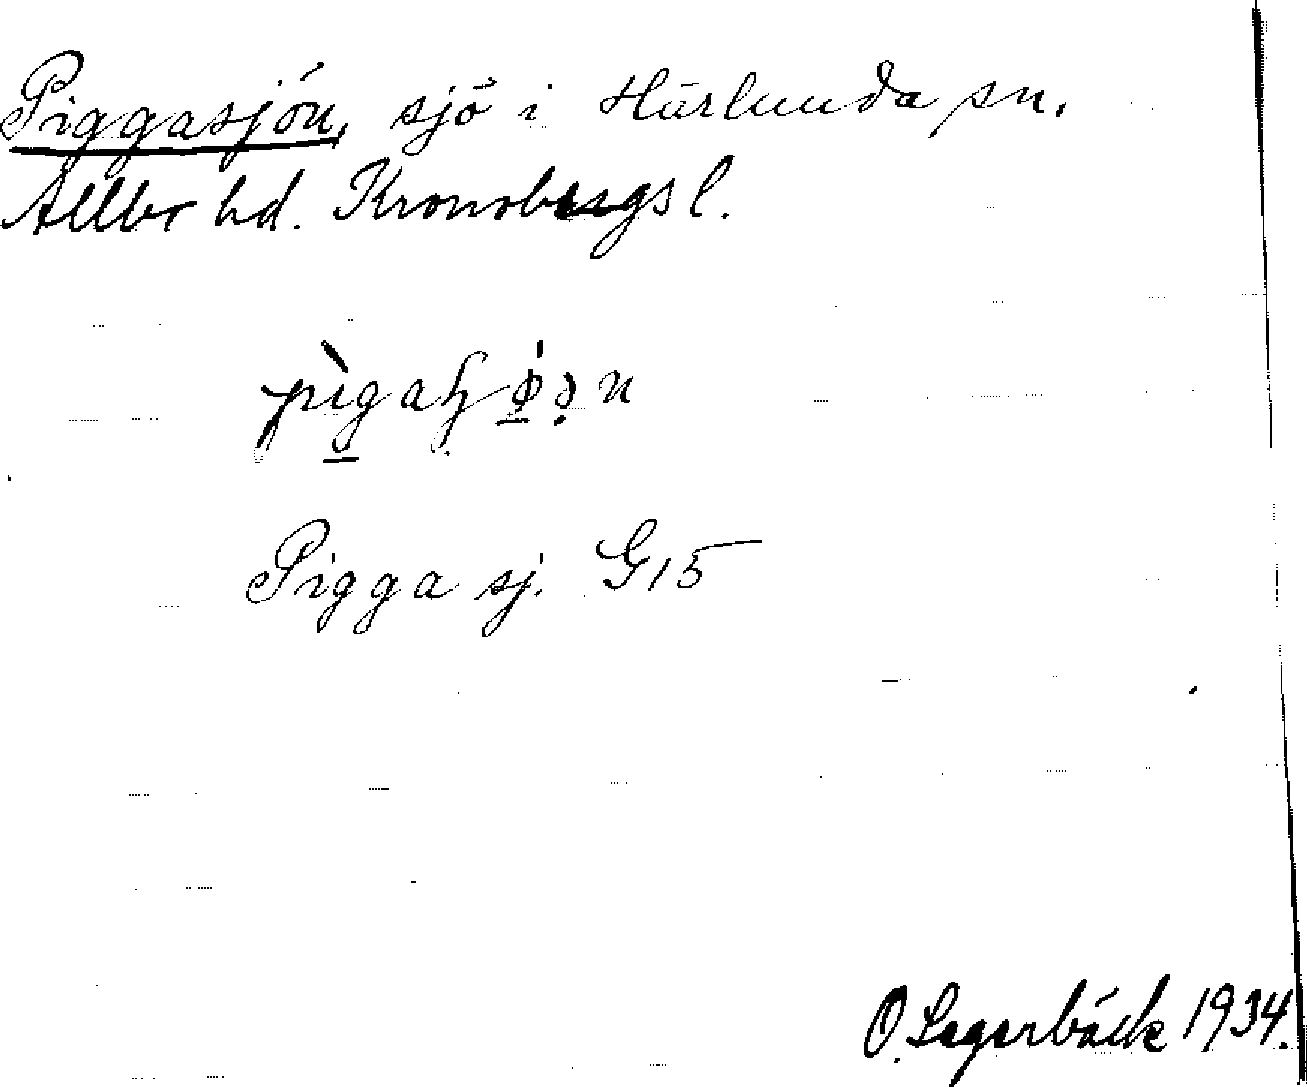 Piggasjön, sjö i Härlunda sn.
Allbo hd. Kronobergs l.
Pigga sj. G15
O. Lagerbäck 1934.